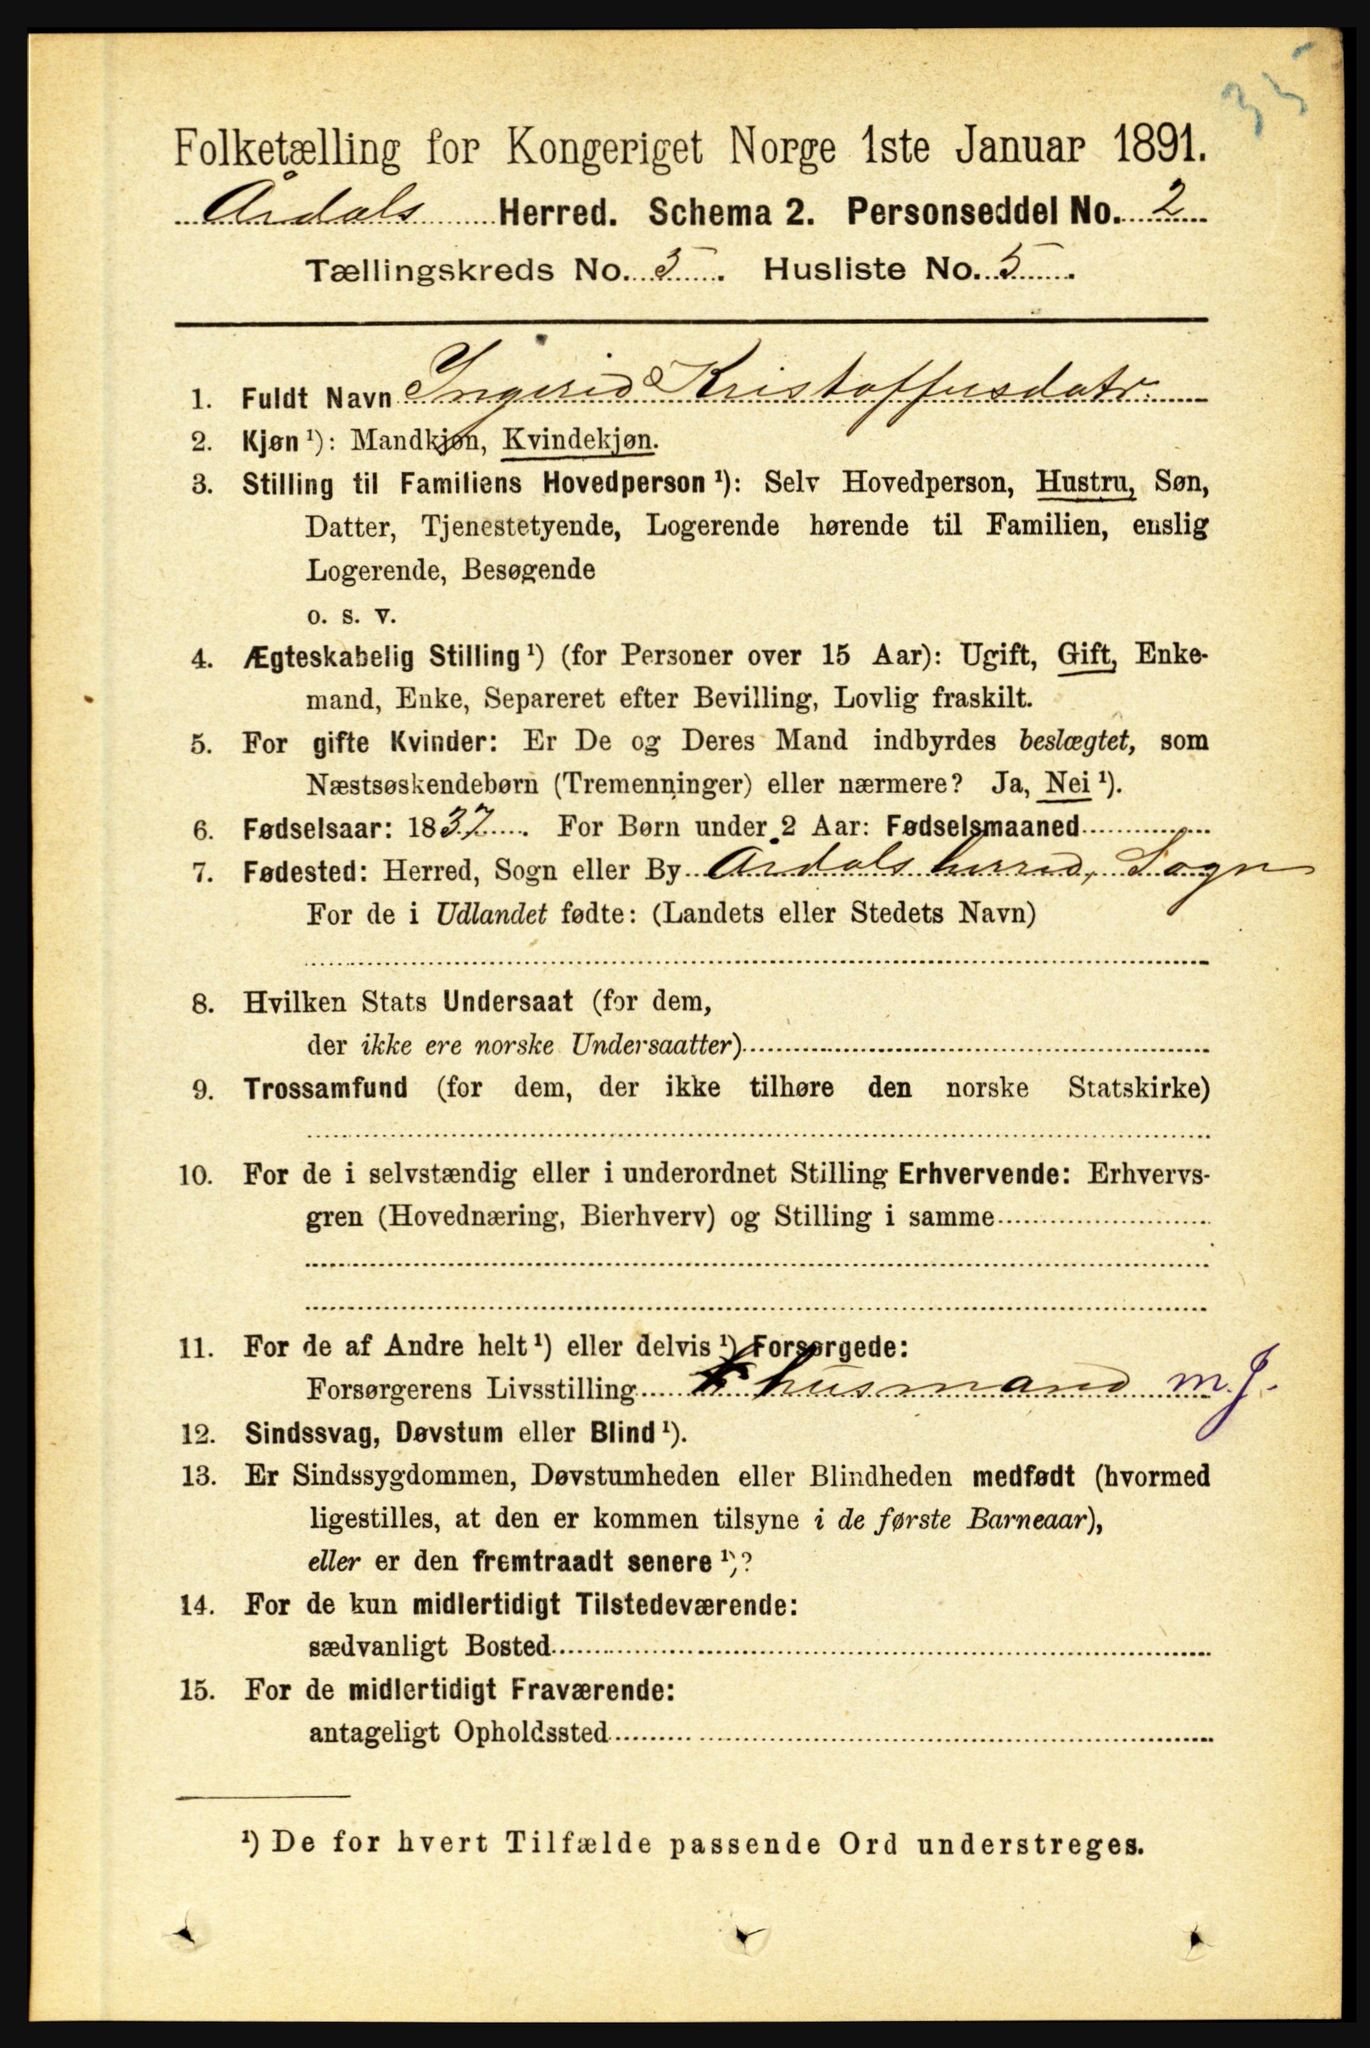 35
Folketælling for Kongeriget Norge 1ste Januar 1891.
Årdals Herred. Schema 2. Personseddel No. 2
Tællingskreds No. 3. Husliste No. 5.
1. Fuldt Navn Ingerid Kristoffersdatr.
2. Kjøn ¹): Mandkjøn, Kvindekjøn.
3. Stilling til Familiens Hovedperson ¹): Selv Hovedperson, Hustru, Søn,
Datter, Tjenestetyende, Logerende hørende til Familien, enslig
Logerende, Besøgende
o. s. v.
4. Ægteskabelig Stilling ¹) (for Personer over 15 Aar): Ugift, Gift, Enke-
mand, Enke, Separeret efter Bevilling, Lovlig fraskilt.
5. For gifte Kvinder: Er De og Deres Mand indbyrdes beslægtet, som
Næstsøskendebørn (Tremenninger) eller nærmere? Ja, Nei ¹).
6. Fødselsaar: 1837. For Børn under 2 Aar: Fødselsmaaned
7. Fødested: Herred, Sogn eller By Årdals herred, Sogn
For de i Udlandet fødte: (Landets eller Stedets Navn)
8. Hvilken Stats Undersaat (for dem,
der ikke ere norske Undersaatter)
9. Trossamfund (for dem, der ikke tilhøre den norske Statskirke)
10. For de i selvstændig eller i underordnet Stilling Erhvervende: Erhvervs-
gren (Hovednæring, Bierhverv) og Stilling i samme
11. For de af Andre helt ¹) eller delvis ¹) Forsørgede:
Forsørgerens Livsstilling husmand m. J.
12. Sindssvag, Døvstum eller Blind ¹).
13. Er Sindssygdommen, Døvstumheden eller Blindheden medfødt (hvormed
ligestilles, at den er kommen tilsyne i de første Barneaar),
eller er den fremtraadt senere ¹)?
14. For de kun midlertidigt Tilstedeværende:
sædvanligt Bosted
15. For de midlertidigt Fraværende:
antageligt Opholdssted
¹) De for hvert Tilfælde passende Ord understreges.